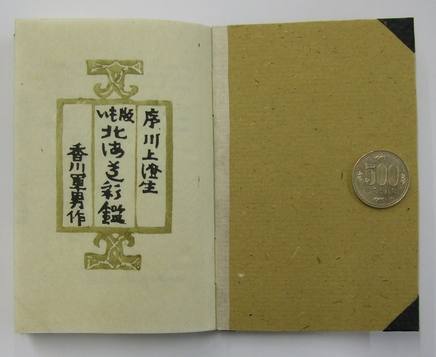 序川上澄生
いも版
北海道彩鑑
香川軍男作
500